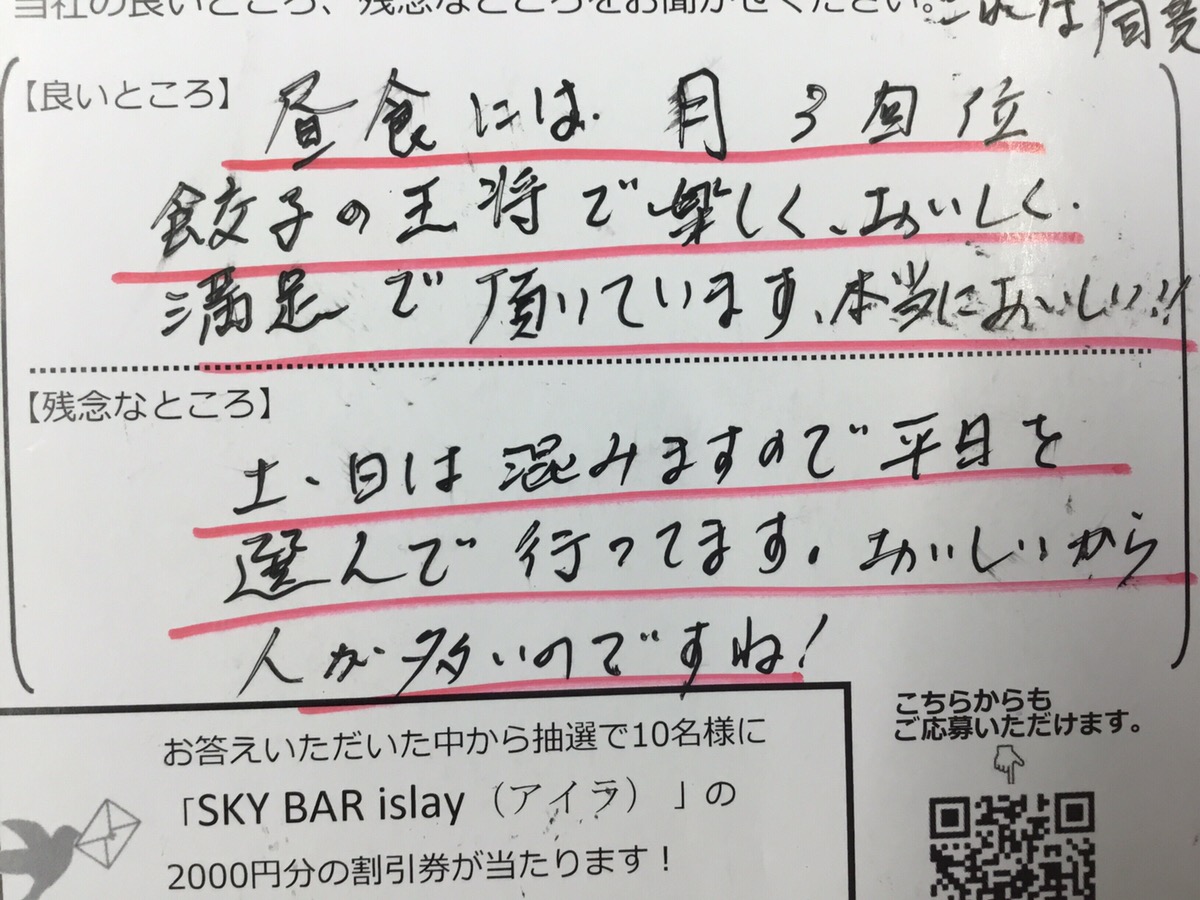 当社の良いところ、残念なところをお聞かせください。これは同
【良いところ】昼食には 月 3 回 位
餃子の王将で楽しく、おいしく
満足で頂いています、本当においしい!!
【残念なところ】
土・日は混みますので平日を
選んで行ってます。おいしいから
人が多いのですね!
こちらからも
ご応募いただけます。
お答えいただいた中から抽選で10名様に
「SKY BAR islay（アイラ）」の
2000円分の割引券が当たります！